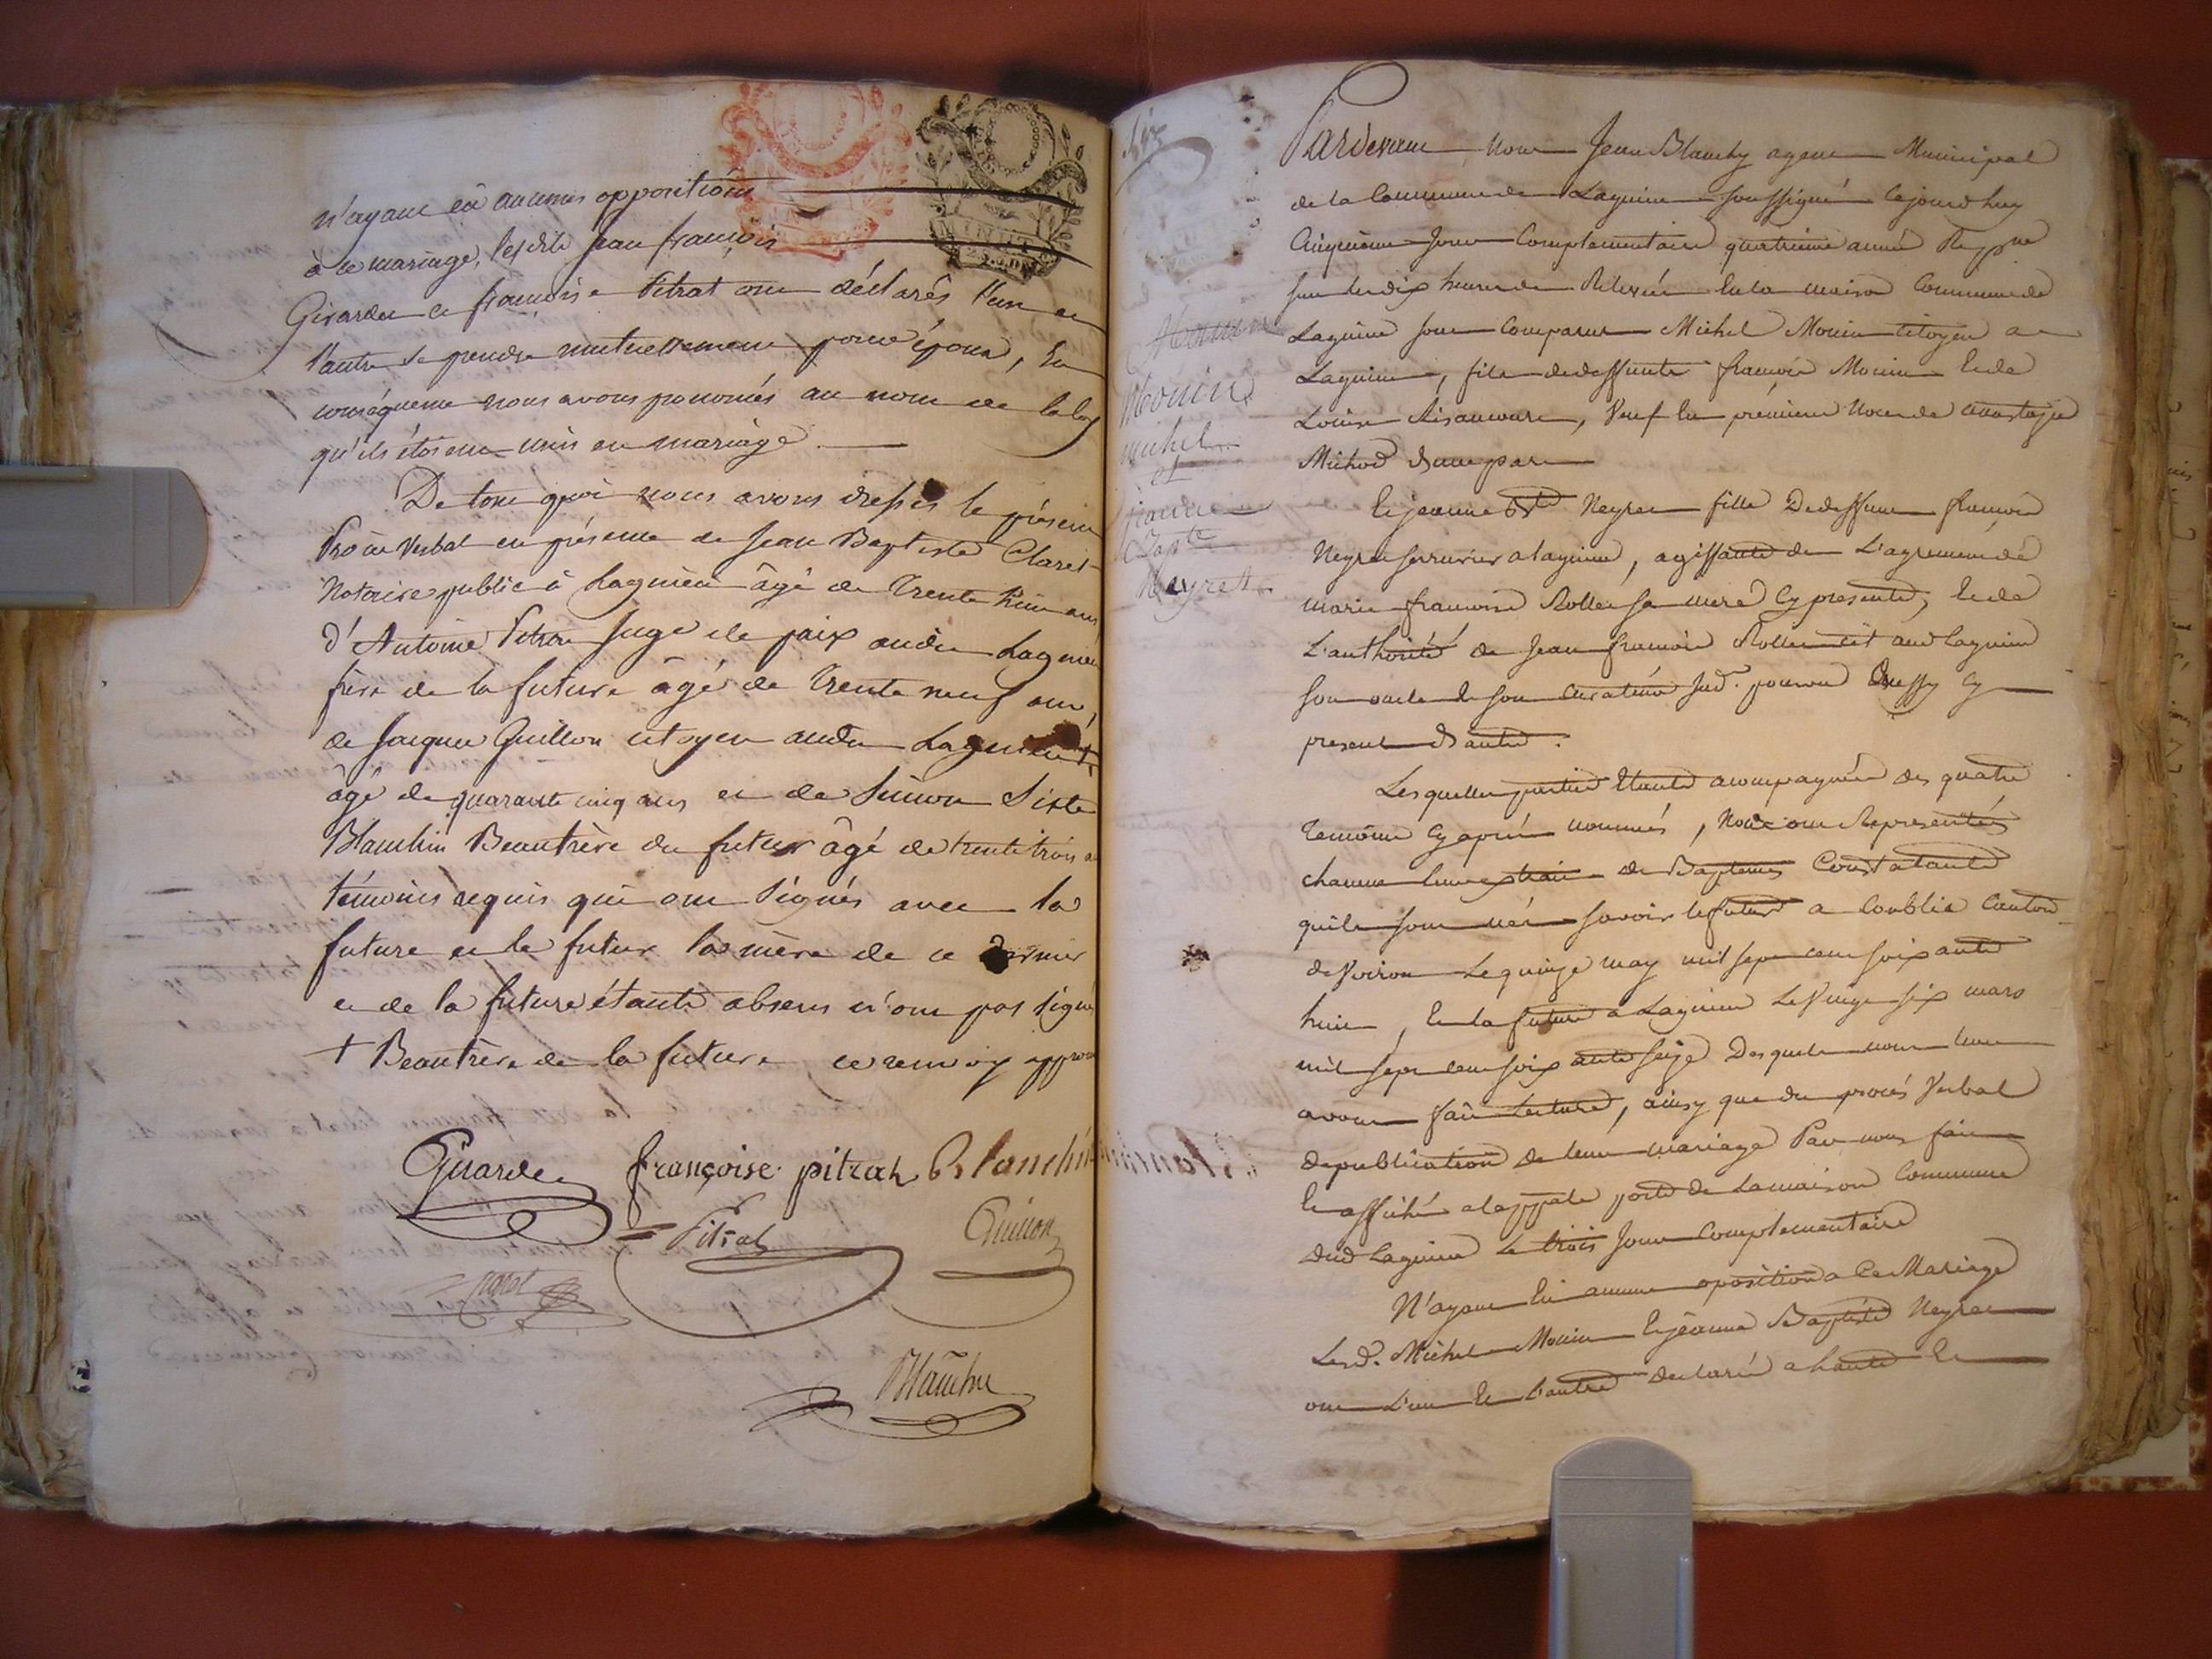 n'ayant eû aucunes oppositions
à ce mariage, lesdits Jean françois
Girardet et françoise Pitrat ont déclarés l'un a
l'autre se prendre mutuellement pour époux, En
conséquence nous avons prononcés au nom de la loy
qu'ils étoient unis en mariage
De tout quoi nous avons dressés le présent
Procès Verbal en présence de Jean Baptiste Claret
Notaire public à Lagnieu âgé de Trente huit ans
d'Antoine Pitrat Juge de paix audit Lagnieu
frère de la future âgé de Trente neuf ans,
de Jacques Guillon citoyen audit Lagnieu +
âgé de quarante cinq ans et de Simon Sixte
Blanchin Beaufrère du futur âgé de trente trois a
témoins requis qui ont signés avec la
future et le futur la mère de ce dernier
et de la future étante absens n'ont pas signé
+ Beaufrère de la future ce renvoy approu
Girardet françoise pitrat Blanchin
Pitrat Guillon
Claret
Blanchy
Pardevant Nous Jean Blanchy agent Municipal
de la Commune de Lagnieu soussigné Cejourd huy
Cinquieme Jour Complementaire quatrieme année Rep.ne
sur les dix heures de Relevée En la maison Commune de
Lagnieu sont Comparus Michel Monin citoyen a
Lagnieu, fils de deffunts françois Monin Et de
Louise, Veuf En premiere Noces de anastazie
Michod d'une part
Et jeanne Bte Neyret fille De deffunt françois
Neyret serrurier a lagnieu, agissante de L'agrement de
marie francoise Rollet sa mere Cy presente, Et de
L'authorité de Jean francois Rollet cit aud lagnieu
son oncle et son Curateur Jud. pourvu Cy
present d'autre.
Les quelles parties Etante acompagnées des quatre
temoins Cy après nommés, Nous ont Representés
chacun leur extrait de Baptemes Constatants
quils sont nés savoir le futur a Coublevie Canton
de Voiron Le quinze may mil sept cent soixante
huit, Et la future a Lagnieu Le Vingt six mars
mil sept cent soixante seize Des quels nous leur
avons fait Lecture, ainsy que du procés Verbal
de publication de leur mariage Par nous fait
Et affiché a la pple porte de la maison Commune
dud Lagnieu Le trois Jour Complementaire
N'ayant Eu aucune oposition a Ce Mariage
Lesd. Michel Monin Et jeanne Baptiste Neyret
ont L'un Et L'autre declaré a haute Et
Monin
michel
et
jeanne
Bapte
Neyret